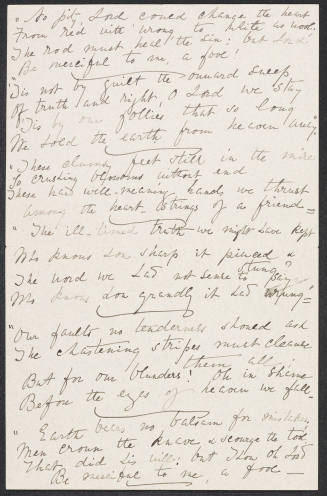 "No pity, Lord could change the heart
From red with wrong to white as wool.
The rod must heal the sin; but Lord!
Be merciful to me, a fool!
"Tis not by guilt the onward sweep
Of truth and right, O Lord we stay
'Tis by our follies that so long
We hold the earth from heaven away.
"These clumsy feet still in the mire
Go crushing blossoms without end
These hard well-meaning hands we thrust
Among the heart-strings of a friend—
"The ill-timed truth we might have kept
Who knows how sharp it pierced & stung?
The word we had not sense to say
Who knows how grandly it had rung!
"Our faults no tenderness should ask
The chastening stripes must cleanse them all;
But for our blunders! Oh in shame
Before the eyes of heaven we fall—
"Earth bears no balsam for mistakes
Men crown the knave & scourge the tool
That did his will; but Thou Oh Lord
Be merciful to me, a fool—